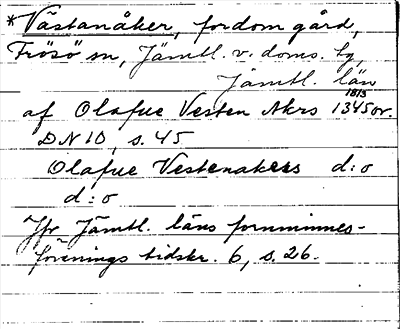 *Västanåker, fordom gård,
Frösö sn, Jämtl. v. doms. tg,
Jämtl. län
1818
af Olafue Vesten Akrs 1345 or.
DN 10, s. 45
Olafue Vestenakers d:o
d:o
Jfr Jämtl. läns fornminnes-
förenings tidskr. 6, s. 26.